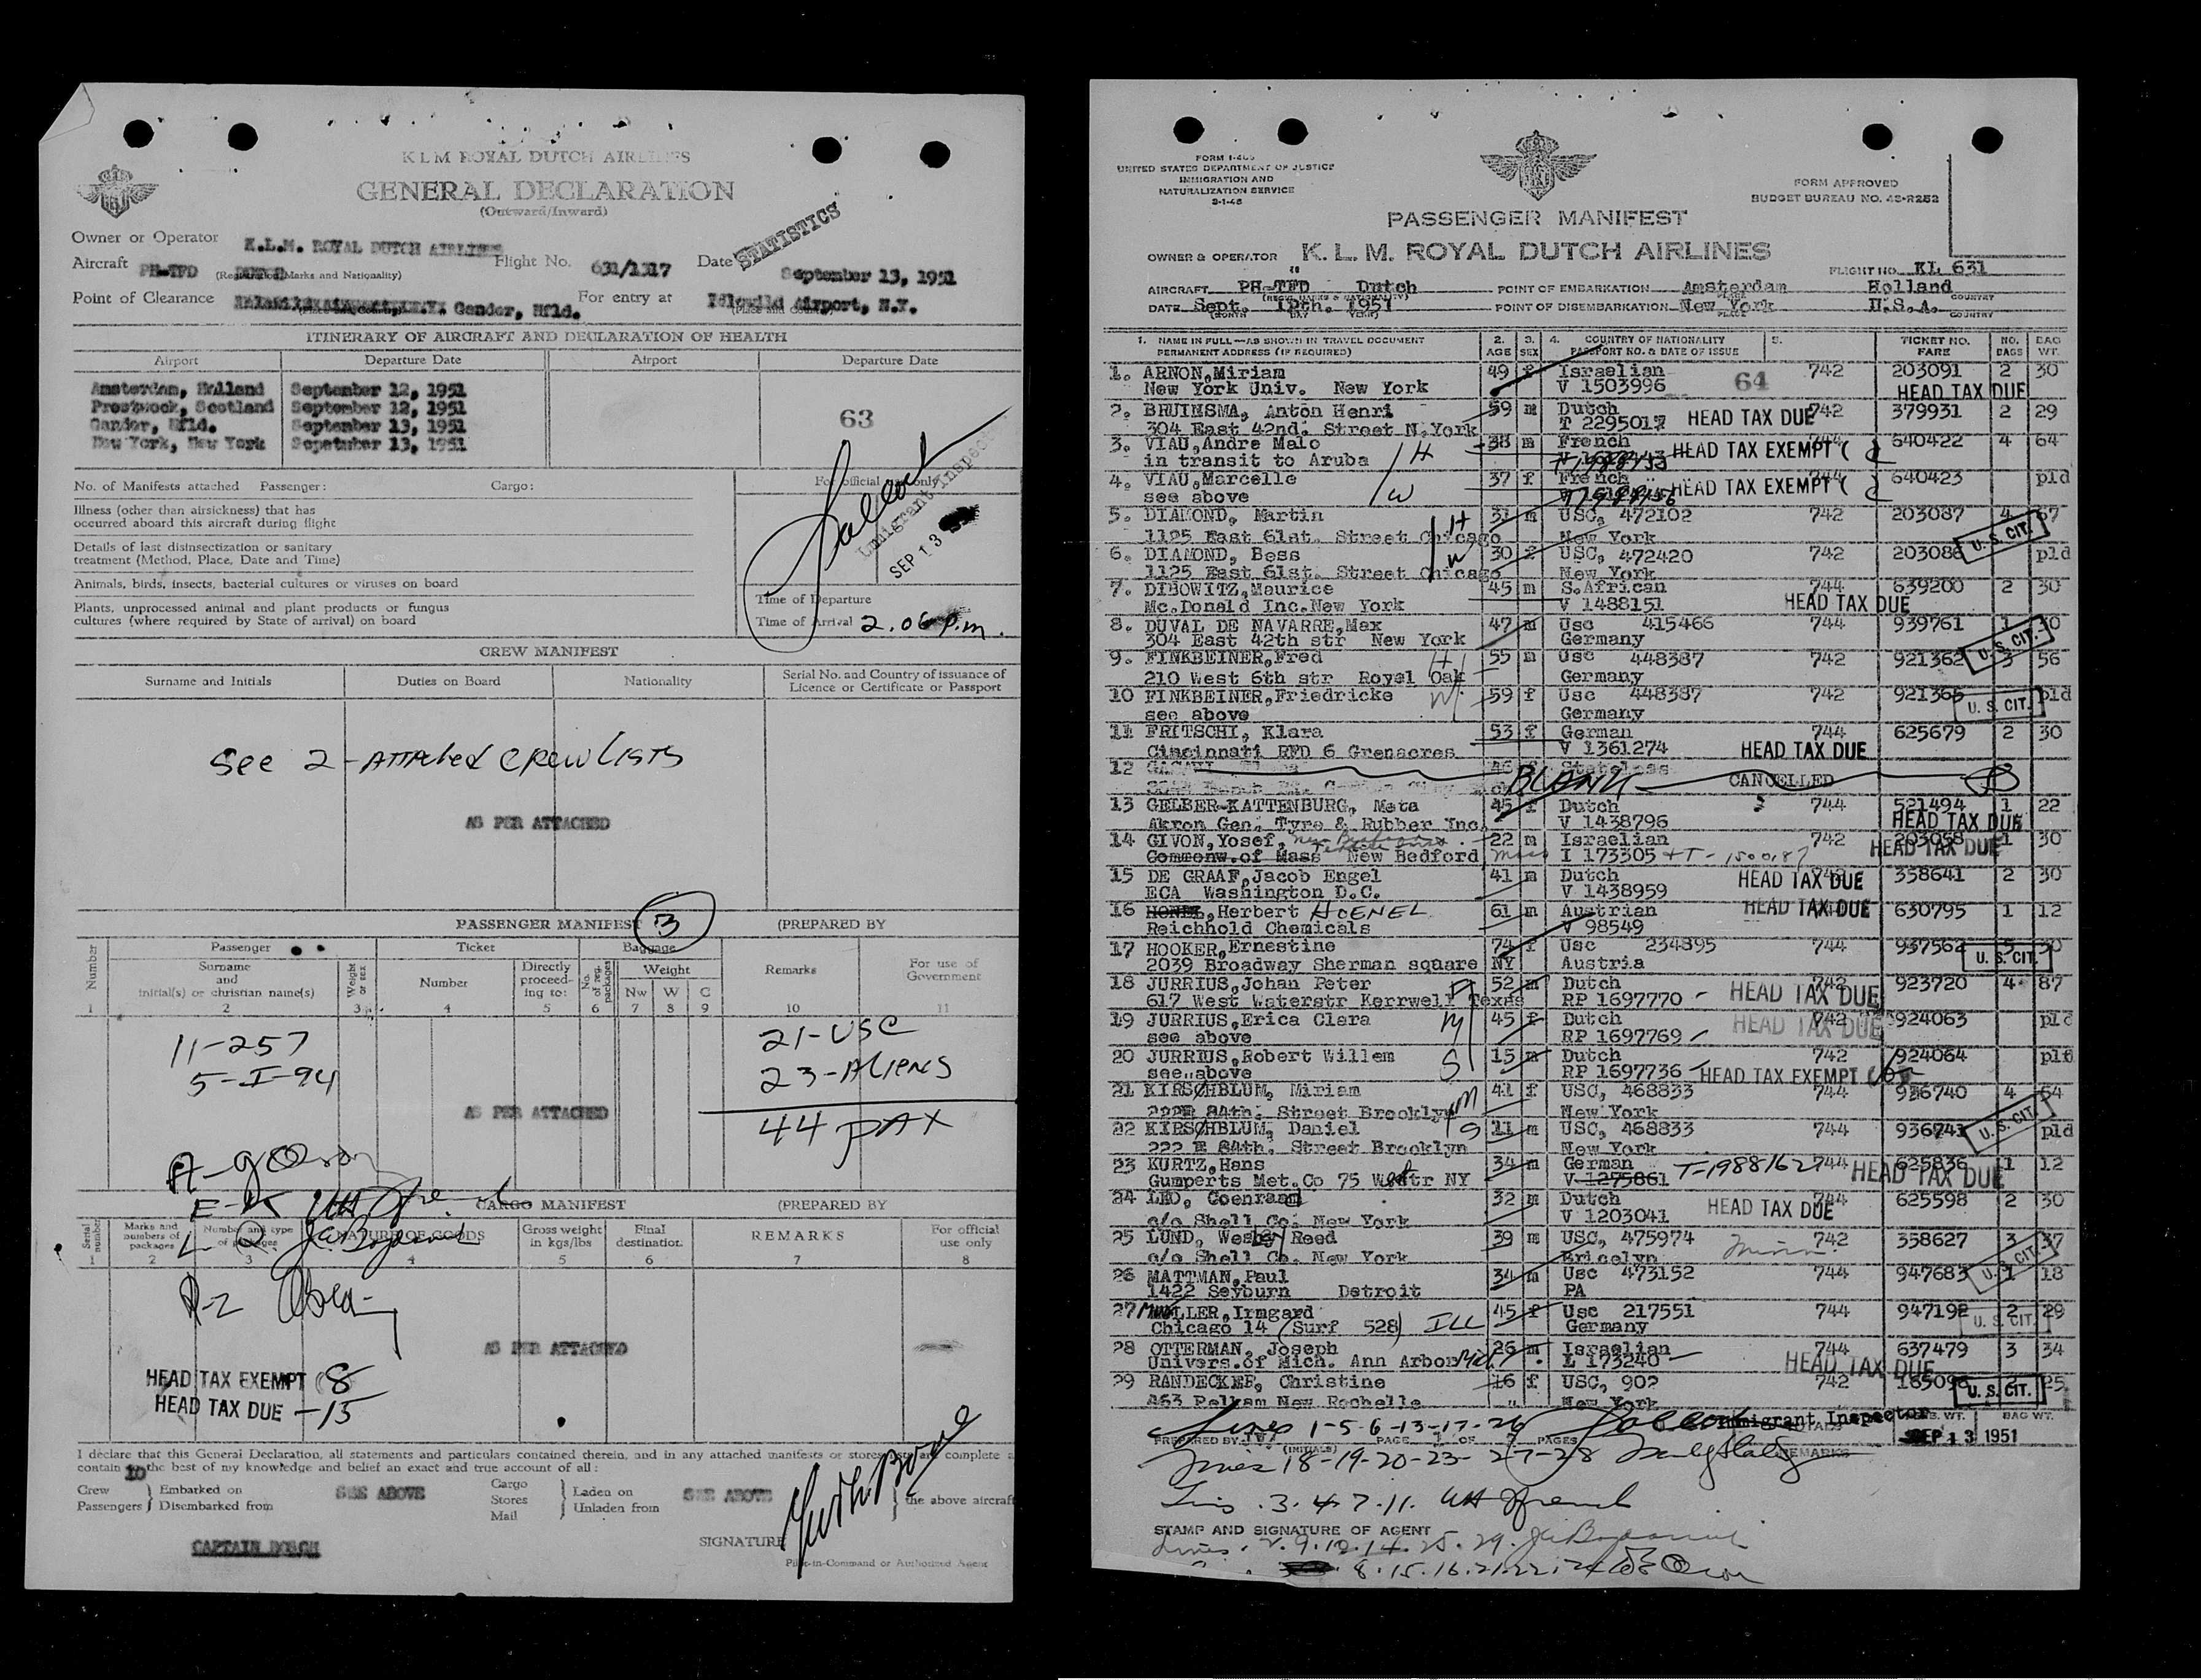 KLM ROYAL DUTCH AIRLINES
GENERAL DECLARATION
(Outward/Inward)
STATISTICS
Owner or Operator K.L.M. ROYAL DUTCH AIRLINES
Aircraft PH-TFD DUTCH (Registration Marks and Nationality) Flight No. 631/1317 Date September 13, 1951
Point of Clearance Gander, Nfld. For entry at Idlewild Airport, N.Y.
(Place and Country)
ITINERARY OF AIRCRAFT AND DECLARATION OF HEALTH
Airport Departure Date Airport Departure Date
Amsterdam, Holland September 12, 1951
Prestwock, Scotland September 12, 1951
Gander, Nfld. September 13, 1951
New York, New York September 13, 1951
63
No. of Manifests attached Passenger: Cargo:
For official use only
Illness (other than airsickness) that has
occurred aboard this aircraft during flight
Immigrant Inspector
SEP 13
Details of last disinsectization or sanitary
treatment (Method, Place, Date and Time)
Animals, birds, insects, bacterial cultures or viruses on board
Plants, unprocessed animal and plant products or fungus
cultures (where required by State of arrival) on board
Time of Departure
Time of Arrival 2.06 p.m.
CREW MANIFEST
Surname and Initials Duties on Board Nationality Serial No. and Country of issuance of
Licence or Certificate or Passport
See 2 - Attached Crew Lists
AS PER ATTACHED
PASSENGER MANIFEST 3 (PREPARED BY
Number Passenger Ticket Baggage Remarks For use of
Government
Surname
and
initial(s) or christian name(s) Weight or sex Number Directly
proceed-
ing to: No. of reg. packages Weight
Nw W C
1 2 3 4 5 6 7 8 9 10 11
11-257 21-USC
5-I-94 23-Aliens
AS PER ATTACHED 44 PAX
CARGO MANIFEST (PREPARED BY
Serial number Marks and
numbers of
packages Number and type
of packages NATURE OF GOODS Gross weight
in kgs/lbs Final
destination REMARKS For official
use only
1 2 3 4 5 6 7 8
AS PER ATTACHED
HEAD TAX EXEMPT 8
HEAD TAX DUE -15
I declare that this General Declaration, all statements and particulars contained therein, and in any attached manifests or stores are complete
contain to the best of my knowledge and belief an exact and true account of all:
Crew
Passengers } Embarked on
Disembarked from SEE ABOVE Cargo
Stores
Mail } Laden on
Unladen from SEE ABOVE } the above aircraft
CAPTAIN
SIGNATURE
Pilot-in-Command or Authorized Agent
FORM I-466
UNITED STATES DEPARTMENT OF JUSTICE
IMMIGRATION AND
NATURALIZATION SERVICE
FORM APPROVED
BUDGET BUREAU NO. 43-R252
PASSENGER MANIFEST
OWNER & OPERATOR K. L. M. ROYAL DUTCH AIRLINES
FLIGHT NO. KL 631
AIRCRAFT PH-TFD Dutch POINT OF EMBARKATION Amsterdam Holland
DATE Sept. 12th. 1951 POINT OF DISEMBARKATION New York U.S.A.
1. NAME IN FULL—AS SHOWN IN TRAVEL DOCUMENT
PERMANENT ADDRESS (IF REQUIRED) 2. AGE 3. SEX 4. COUNTRY OF NATIONALITY
PASSPORT NO. & DATE OF ISSUE 5. TICKET NO.
FARE NO. BAGS BAG WT.
1. ARNON, Miriam 49 f Israelian 742 203091 2 30
New York Univ. New York V 1503996 64 HEAD TAX DUE
2. BRUINSMA, Anton Henri 59 m Dutch 742 379931 2 29
304 East 42nd. Street N.York T 2295017 HEAD TAX DUE
3. VIAU, Andre Malo H 38 m French 744 640422 4 64
in transit to Aruba HEAD TAX EXEMPT (
4. VIAU, Marcelle W 37 f French 744 640423 pld
see above HEAD TAX EXEMPT (
5. DIAMOND, Martin H 31 m USC, 472102 742 203087 4 67
1125 East 61st. Street Chicago New York U. S. CIT.
6. DIAMOND, Bess W 30 f USC, 472420 742 203086 pld
1125 East 61st. Street Chicago New York
7. DIBOWITZ, Maurice 45 m S.African 744 639200 2 30
Mc.Donald Inc.New York V 1488151 HEAD TAX DUE
8. DUVAL DE NAVARRE, Max 47 m Usc 415466 744 939761
304 East 42th str New York Germany U. S. CIT.
9. FINKBEINER, Fred H 55 m Usc 448387 742 921362 3 56
210 West 6th str Royal Oak Germany
10 FINKBEINER, Friedricke W 59 f Usc 448387 742 921365 pld
see above Germany U. S. CIT.
11 FRITSCHI, Klara 53 f German 744 625679 2 30
Cincinnati RFD 6 Grenacres V 1361274 HEAD TAX DUE
12 46 Stateless
BLANK CANCELLED
13 GELBER-KATTENBURG, Meta 45 f Dutch 744 521494 1 22
Akron Gen. Tyre & Rubber Inc. V 1438796 HEAD TAX DUE
14 GIVON, Yosef, 22 m Israelian 742 203058 1 30
Commonw.of Mass New Bedford Mass I 173305 + T-150018? HEAD TAX DUE
15 DE GRAAF, Jacob Engel 41 m Dutch 358641 2 30
ECA Washington D.C. V 1438959 HEAD TAX DUE
16 HONEL, Herbert HOENEL 61 m Austrian HEAD TAX DUE 630795 1 12
Reichhold Chemicals V 98549
17 HOOKER, Ernestine 74 f Usc 234895 744 937562 30
2039 Broadway Sherman square NY Austria U. S. CIT.
18 JURRIUS, Johan Peter 52 m Dutch 742 923720 4 87
617 West Waterstr Kerrwell Texas RP 1697770 HEAD TAX DUE
19 JURRIUS, Erica Clara 45 f Dutch 742 924063 pld
see above RP 1697769 HEAD TAX DUE
20 JURRIUS, Robert Willem S 15 m Dutch 742 924064
see above RP 1697736 HEAD TAX EXEMPT
21 KIRSCHBLUM, Miriam M 41 f USC, 468833 744 936740 4 64
222E 84th. Street Brooklyn New York
22 KIRSCHBLUM, Daniel S 11 m USC, 468833 744 936741 pld
222 E 84th. Street Brooklyn New York U. S. CIT.
23 KURTZ, Hans 34 m German T-1988162 744 625836 1 12
Gumperts Met.Co 75 West str NY V 1275861 HEAD TAX DUE
24 LED, Coenraad 32 m Dutch 744 625598 2 30
c/o Shell Co. New York V 1203041 HEAD TAX DUE
25 LUND, Wesley Reed 39 m USC, 475974 742 358627 3 37
c/o Shell Co. New York Bricelyn Minn. U. S. CIT.
26 MATTMAN, Paul 34 m Usc 473152 744 947683 1 18
1422 Seyburn Detroit PA
27 MULLER, Irmgard 45 f Usc 217551 744 947192 2 29
Chicago 14 (Surf 528) ILL Germany U. S. CIT.
28 OTTERMAN, Joseph 26 m Israelian 744 637479 3 34
Univers.of Mich. Ann Arbor Mich. I 173240 HEAD TAX DUE
29 RANDECKER, Christine 16 f USC, 902 742 165096 2 25
463 Pelham New Rochelle New York U. S. CIT.
Lines 1-5-6-13-17-26 Immigrant Inspector
PREPARED BY (INITIALS) PAGE OF PAGES SEP 13 1951 BAG WT.
Lines 18-19-20-23-27-28 REMARKS
Lines 3.4.7.11.
STAMP AND SIGNATURE OF AGENT
Lines 2.9.10.14.25.29.
8.15.16.21.22.24